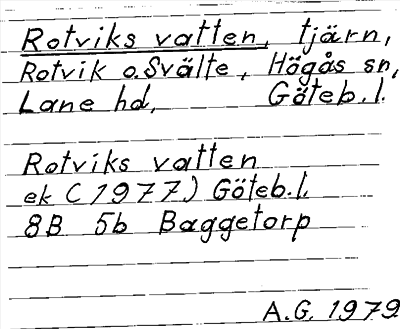 Rotviks vatten, tjärn,
Rotvik o. Svälte, Högås sn,
Lane hd, Göteb. l.
Rotviks vatten
ek (1977) Göteb. l.
8B 5b Baggetorp
A.G. 1979.